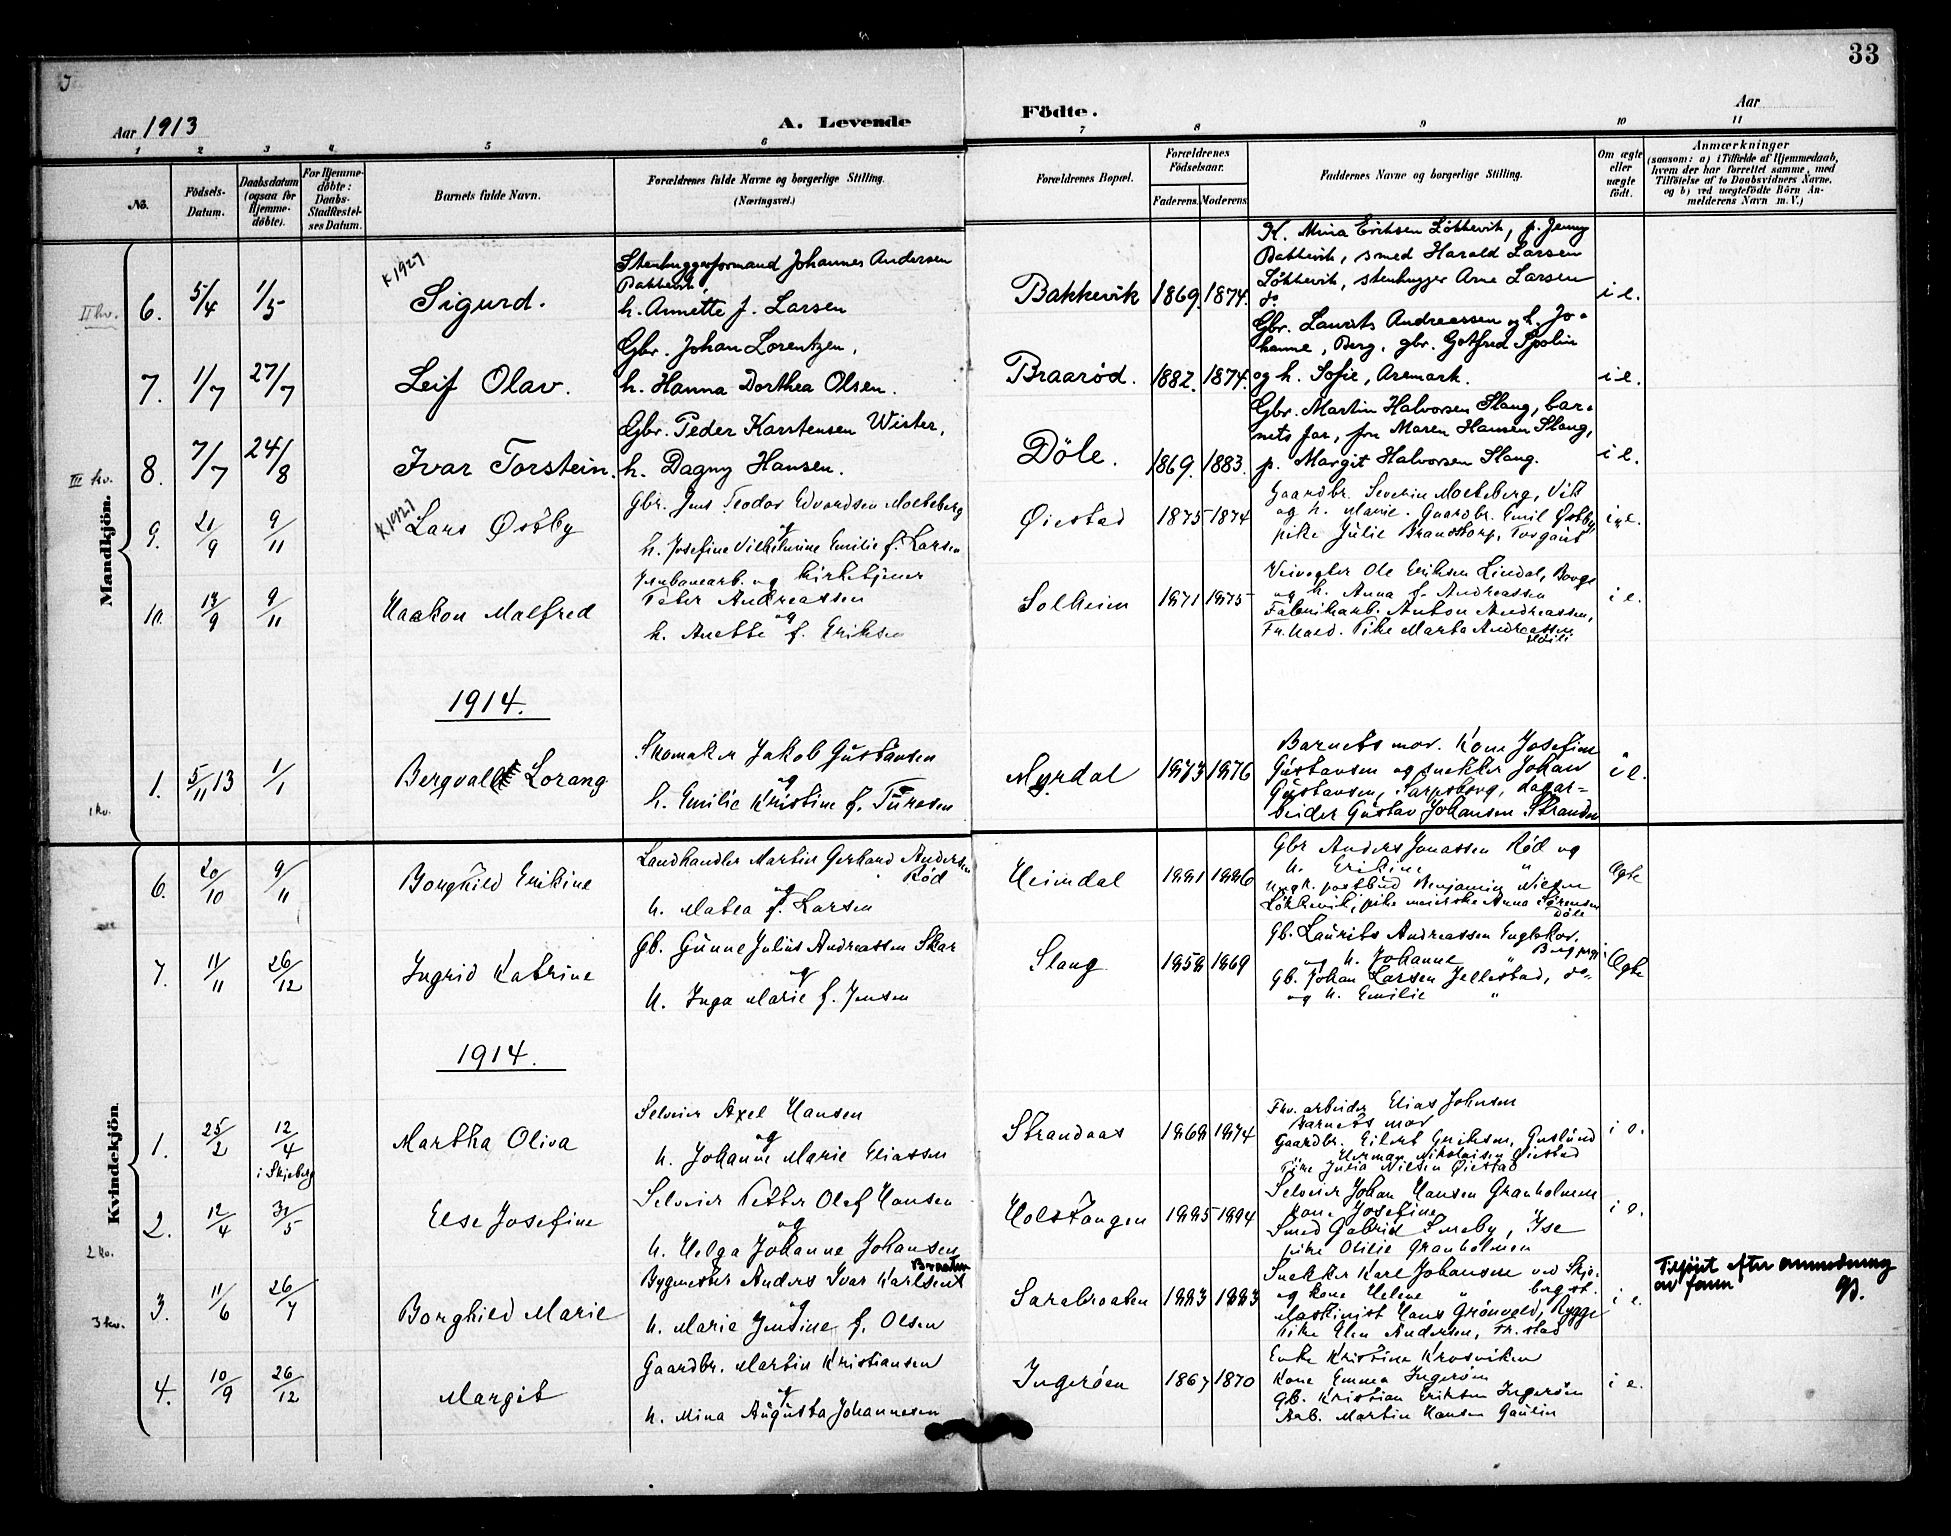 33
Aar 1913
A. Levende Födte.
Aar
1 2 3 4 5 6 7 8 9 10 11
No.
Födsels-Datum.
Daabsdatum (ogsaa for Hjemme-döbte).
For Hjemme-döbte: Daabs-Stadfæstel-ses Datum.
Barnets fulde Navn.
Forældrenes fulde Navne og borgerlige Stilling.
(Næringsvei.)
Forældrenes Bopæl.
Forældrenes Födselsaar.
Faderens. Moderens.
Faddernes Navne og borgerlige Stilling.
Om ægte eller uægte födt.
Anmærkninger
(saasom: a) i Tilfælde af Hjemmedaab, hvem der har forrettet samme, med Tilföielse af to Daabsvidners Navne, og b) ved uegtefödte Börn An-melderens Navn m. V.)
Mandkjön.
II kv.
6. 5/4 1/5
K 1927
Sigurd.
Stenhuggerformand Johannes Andersen
Bakkevik,
h. Annette f. Larsen
Bakkevik 1869. 1874.
K. Mina Eriksen Løkkevik, p. Jenny
Bakkevik, smed Harald Larsen
Løkkevik, stenhugger Arne Larsen
do
i e.
7. 1/7 27/7
Leif Olav.
Gbr. Johan Lorentzen,
h. Hanna Dorthea Olsen.
Braarød. 1882. 1874.
Gbr. Laurits Andreassen og h. Jo-
hanne, Berg, gbr. Gotfred Spolin
og h. Sofie, Aremark.
i e.
III kv.
8. 7/7 24/8
Ivar Torstein.
Gbr. Peder Karstensen Wister,
h. Dagny Hansen.
Döle. 1869. 1883.
Gbr. Martin Halvorsen Slang, bar-
nets far, fru Maren Hansen Slang,
p. Margit Halvorsen Slang.
i e.
9. 21/9 9/11
K 1927
Lars Østby
Gbr. Jens Teodor Edvardsen Molteberg
og
h. Josefine Vilhelmine Emilie f. Larsen
Øiestad 1875 1874
Gaardbr. Severin Molteberg, Vik
og h. Marie. Gaardbr. Emil Østby,
pike Julie Brandstorp, Torgaut
i e.
10. 13/9 9/11
Haakon Malfred
Jernbanearb. og kirketjener
Peter Andreassen
og
h. Anette f. Eriksen
Solheim 1871 1875
Veivogter Ole Eriksen Lindal, Borge
og h. Anna f. Andreassen
Fabrikarb. Anton Andreassen,
Fr.hald. Pike Marta Andreassen
i e.
1914.
1 kv.
1. 5/11 13 1/1
Bergvald Lorang
Skomaker Jakob Gustavsen
og
h. Emilie Kristine f. Turesen
Myrdal 1873 1876
Barnets mor. Kone Josefine
Gustavsen og snekker Johan
Gustavsen, Sarpsborg, dagar-
beider Gustav Johansen Stranden
i e.
Kvindekjön.
6. 20/10 9/11
Borghild Erikine
Landhandler Martin Gerhard Andersen
Röd
og
h. Matea f. Larsen
Heimdal 1881 1886
Gbr Anders Jonassen Röd og
h. Erikine "
Ungk. postbud Benjamin Nilsen
Løkkevik, pike meierske Anna Sørensen
Döle
Ægte
7. 11/11 26/12
Ingrid Katrine
Gb. Gunne Julius Andreassen Skar
og
h. Inga Marie f. Jensen
Slang 1858 1869
Gb. Laurits Andreassen Englekor,
og h. Johanne " Berg prgj
Gb. Johan Larsen Jellestad, do-
og h. Emilie "
Ægte
1914.
1. 25/2 12/4
i Skjeberg
Martha Oliva
Selveier Axel Hansen
og
h. Johanne Marie Eliassen
Strandaas 1868 1874
Fhv. arbeider Elias Johnsen
Barnets mor
Gaardbr. Eilert Eriksen, Guslund
" Herman Nikolaisen Øiestad
Pike Julia Nilsen Øiestad
i e.
2 kv.
2. 12/4 31/5
Else Josefine
Selveier Petter Olef Hansen
og
h. Helga Johanne Johansen
Holstangen 1885 1894
Selveier Johan Hansen Granholmen
kone Josefine "
Smed Gabriel Smeby, Ise
pike Otilie Granholmen
i e.
3 kv.
3. 11/6 26/7
Borghild Marie
Braaten
Bygmester Anders Ivar Karlsen
og
h. Marie Jensine f. Olsen
Sarabraaten 1883 1883
Snekker Karl Johansen ved Skje-
og kone Helene " berg st.
Maskinist Hans Grönvold, Rygge
Pike Elen Andersen, Fr.stad
i e.
Tilføiet efter anmodning
av faren
4. 10/9 26/12
Margit
Gaardbr. Martin Kristiansen
og
h. Mina Augusta Johannesen
Ingeröen 1867 1870
Enke Kristine Krosviken
Kone Emma Ingeröen
Gb. Kristian Eriksen Ingeröen
Arb. Martin Hansen Gaulin
i e.